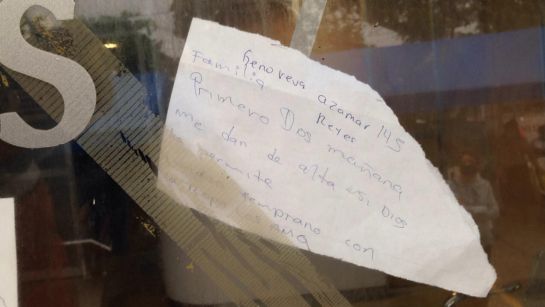 S
Genoveva azamar 145
Familia Reyes
Primero Dios mañana
me dan de alta si Dios
permite
temprano con